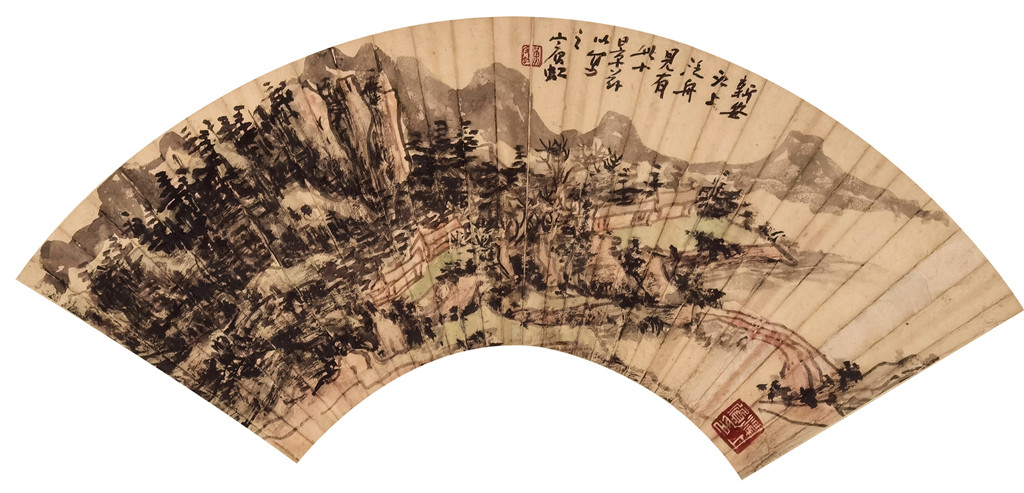 新安
江上
泛舟
見有
此
景
以寫
之
賓虹